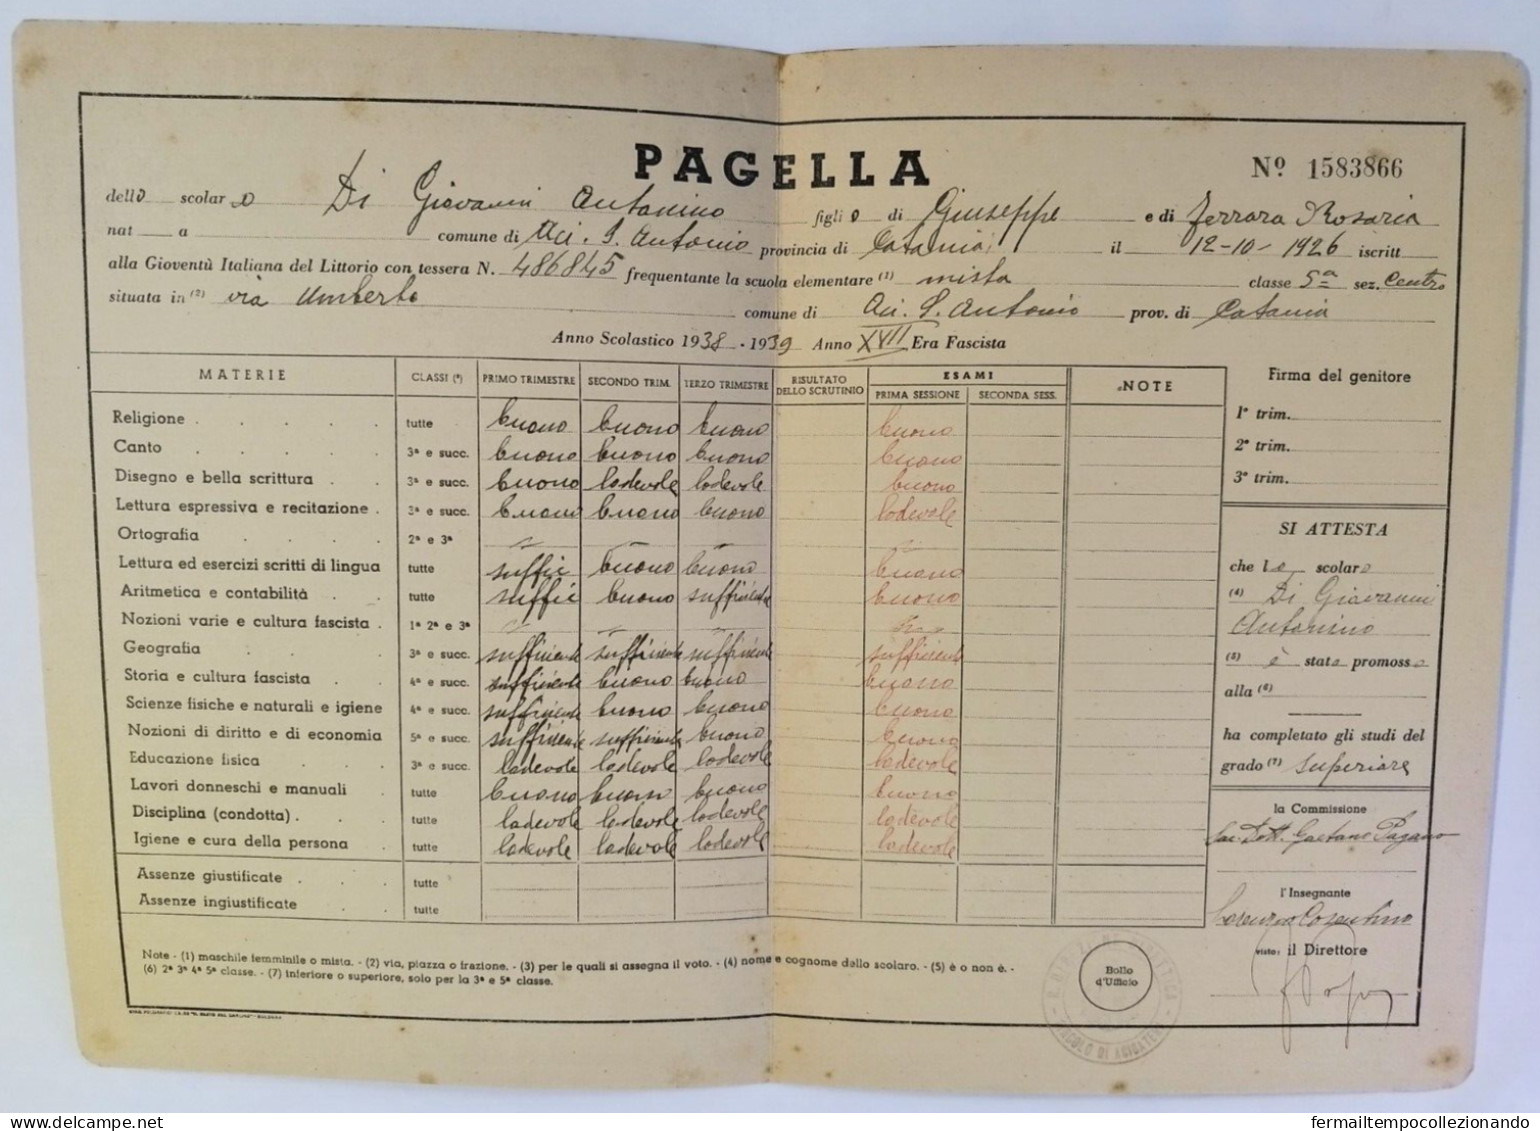 PAGELLA
Nº 1583866
dello scolaro Di Giovanni Antonino figlio di Giuseppe e di Ferrara Rosaria
nat a comune di Aci. S. Antonio provincia di Catania il 12-10-1926 iscritt
alla Gioventù Italiana del Littorio con tessera N. 486845 frequentante la scuola elementare (1) mista classe 5ª sez. Centro
situata in (2) via Umberto comune di Aci. S. Antonio prov. di Catania
Anno Scolastico 1938 - 1939 Anno XVII Era Fascista
MATERIE CLASSI (³) PRIMO TRIMESTRE SECONDO TRIM. TERZO TRIMESTRE RISULTATO DELLO SCRUTINIO ESAMI PRIMA SESSIONE SECONDA SESS. NOTE
Religione tutte buono buono buono buono
Canto 3ª e succ. buono buono buono buono
Disegno e bella scrittura 3ª e succ. buono lodevole lodevole buono
Lettura espressiva e recitazione 3ª e succ. buono buono buono lodevole
Ortografia 2ª e 3ª
Lettura ed esercizi scritti di lingua tutte suffic buono buono buono
Aritmetica e contabilità tutte suffic buono sufficiente buono
Nozioni varie e cultura fascista 1ª 2ª e 3ª
Geografia 3ª e succ. sufficiente sufficiente sufficiente sufficiente
Storia e cultura fascista 4ª e succ. sufficiente buono buono buono
Scienze fisiche e naturali e igiene 4ª e succ. sufficiente buono buono buono
Nozioni di diritto e di economia 5ª e succ. sufficiente sufficiente buono buono
Educazione fisica 3ª e succ. lodevole lodevole lodevole lodevole
Lavori donneschi e manuali tutte buono buono buono buono
Disciplina (condotta) tutte lodevole lodevole lodevole lodevole
Igiene e cura della persona tutte lodevole lodevole lodevole lodevole
Assenze giustificate tutte
Assenze ingiustificate tutte
Firma del genitore
1º trim.
2º trim.
3º trim.
SI ATTESTA
che lo scolaro
(4) Di Giovanni
Antonino
(5) è stato promosso
alla (6)
ha completato gli studi del
grado (7) superiore
la Commissione
Sac. Dott. Gaetano Pagano
l'Insegnante
Lorenzo Cosentino
visto: il Direttore
Bollo
d'Ufficio
Note - (1) maschile femminile o mista. - (2) via, piazza o frazione. - (3) per le quali si assegna il voto. - (4) nome e cognome dello scolaro. - (5) è o non è. -
(6) 2ª 3ª 4ª 5ª classe. - (7) inferiore o superiore, solo per la 3ª e 5ª classe.
delcampe.net
fermailtempocollezionando